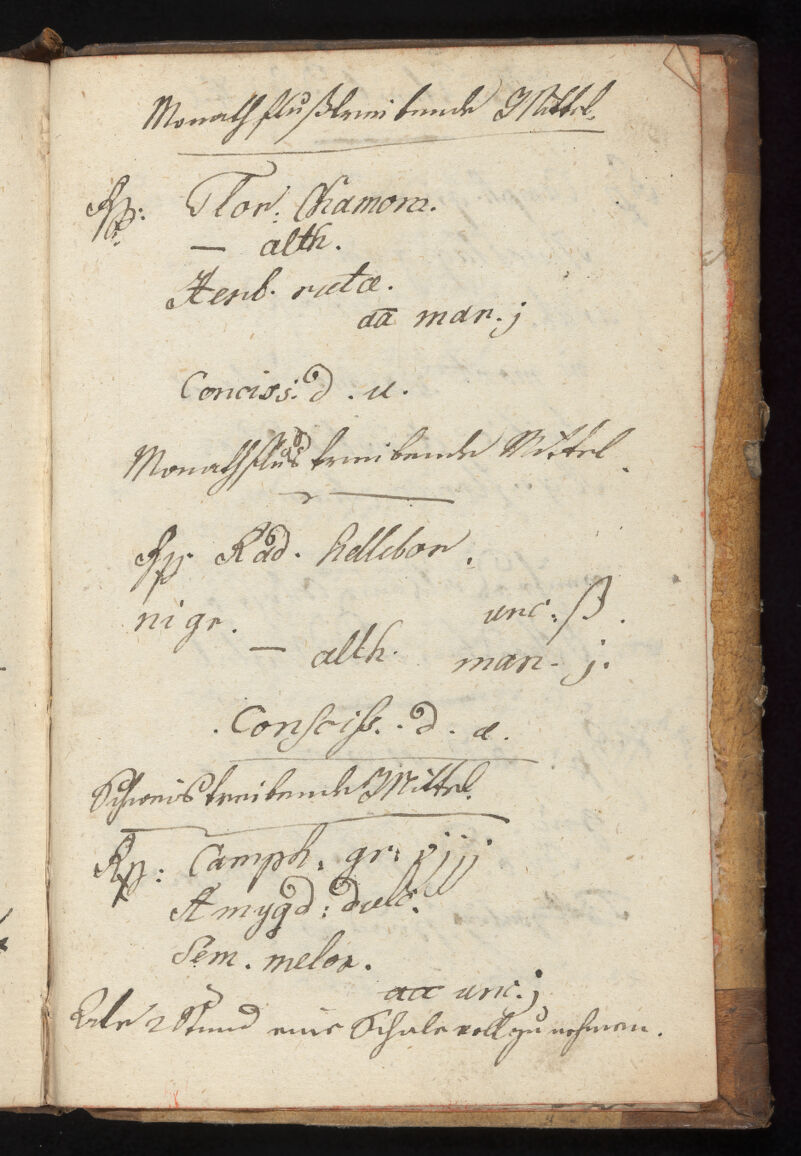 Monathflußtreibende Mittel.
Rp: Flor: Chamom.
— alth.
Herb. rutæ.
aa man. j
Conciss: d. u.
Monathflus treibende Mittel.
Rp. Rad. hellebor.
nigr. unc. ß.
— alth. man. j.
Consciss. d. u.
Schweistreibende Mittel.
Rp: Camph. gr: viij
Amygd: dulc.
Sem. melon.
aa unc. j
Ale 2 Stund eine Schale voll zu nehmen.